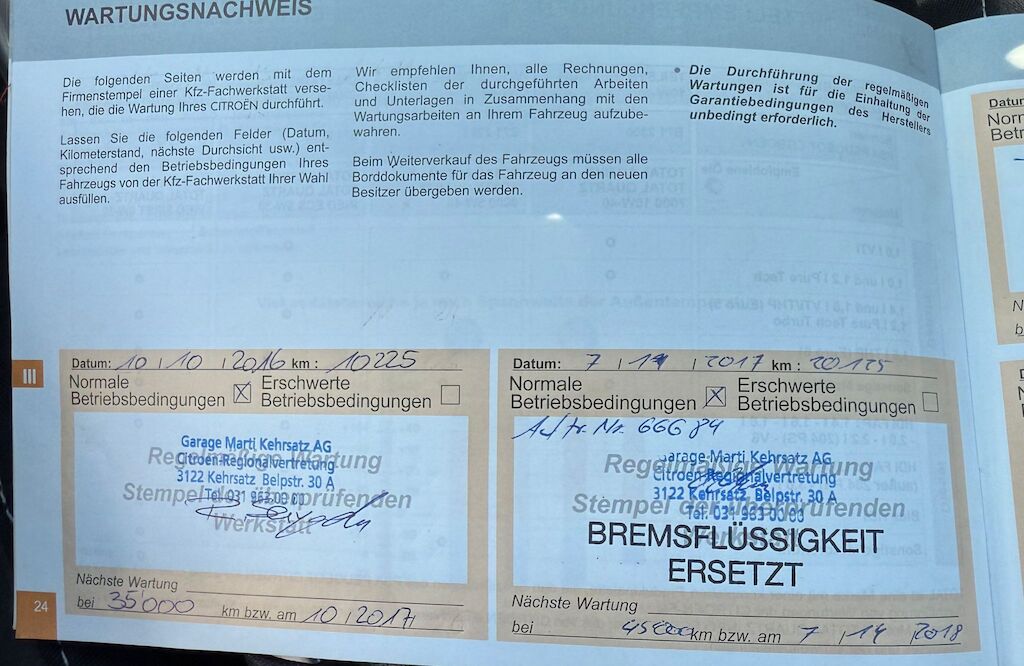 WARTUNGSNACHWEIS
Die folgenden Seiten werden mit dem
Firmenstempel einer Kfz-Fachwerkstatt verse-
hen, die die Wartung Ihres CITROËN durchführt.
Lassen Sie die folgenden Felder (Datum,
Kilometerstand, nächste Durchsicht usw.) ent-
sprechend den Betriebsbedingungen Ihres
Fahrzeugs von der Kfz-Fachwerkstatt Ihrer Wahl
ausfüllen.
Wir empfehlen Ihnen, alle Rechnungen,
Checklisten der durchgeführten Arbeiten
und Unterlagen in Zusammenhang mit den
Wartungsarbeiten an Ihrem Fahrzeug aufzube-
wahren.
Beim Weiterverkauf des Fahrzeugs müssen alle
Borddokumente für das Fahrzeug an den neuen
Besitzer übergeben werden.
• Die Durchführung der regelmäßigen
Wartungen ist für die Einhaltung der
Garantiebedingungen des Herstellers
unbedingt erforderlich.
III
Datum: 10 / 10 / 2016 km : 10225
Normale
Betriebsbedingungen
Erschwerte
Betriebsbedingungen
Garage Marti Kehrsatz AG
Citroën-Regionalvertretung
3122 Kehrsatz Belpstr. 30 A
Tel. 031 963 00 00
Regelmäßige Wartung
Stempel der überprüfenden
Werkstatt
Nächste Wartung
bei 35'000 km bzw. am 10 / 2017
24
Datum: 7 / 11 / 2017 km : 20125
Normale
Betriebsbedingungen
Erschwerte
Betriebsbedingungen
Nr. 66684
Garage Marti Kehrsatz AG
Citroën-Regionalvertretung
3122 Kehrsatz, Belpstr. 30 A
Tel. 031 963 00 00
Regelmäßige Wartung
Stempel der überprüfenden
Werkstatt
BREMSFLÜSSIGKEIT
ERSETZT
Nächste Wartung
bei 45000 km bzw. am 7 / 11 / 2018
Datum